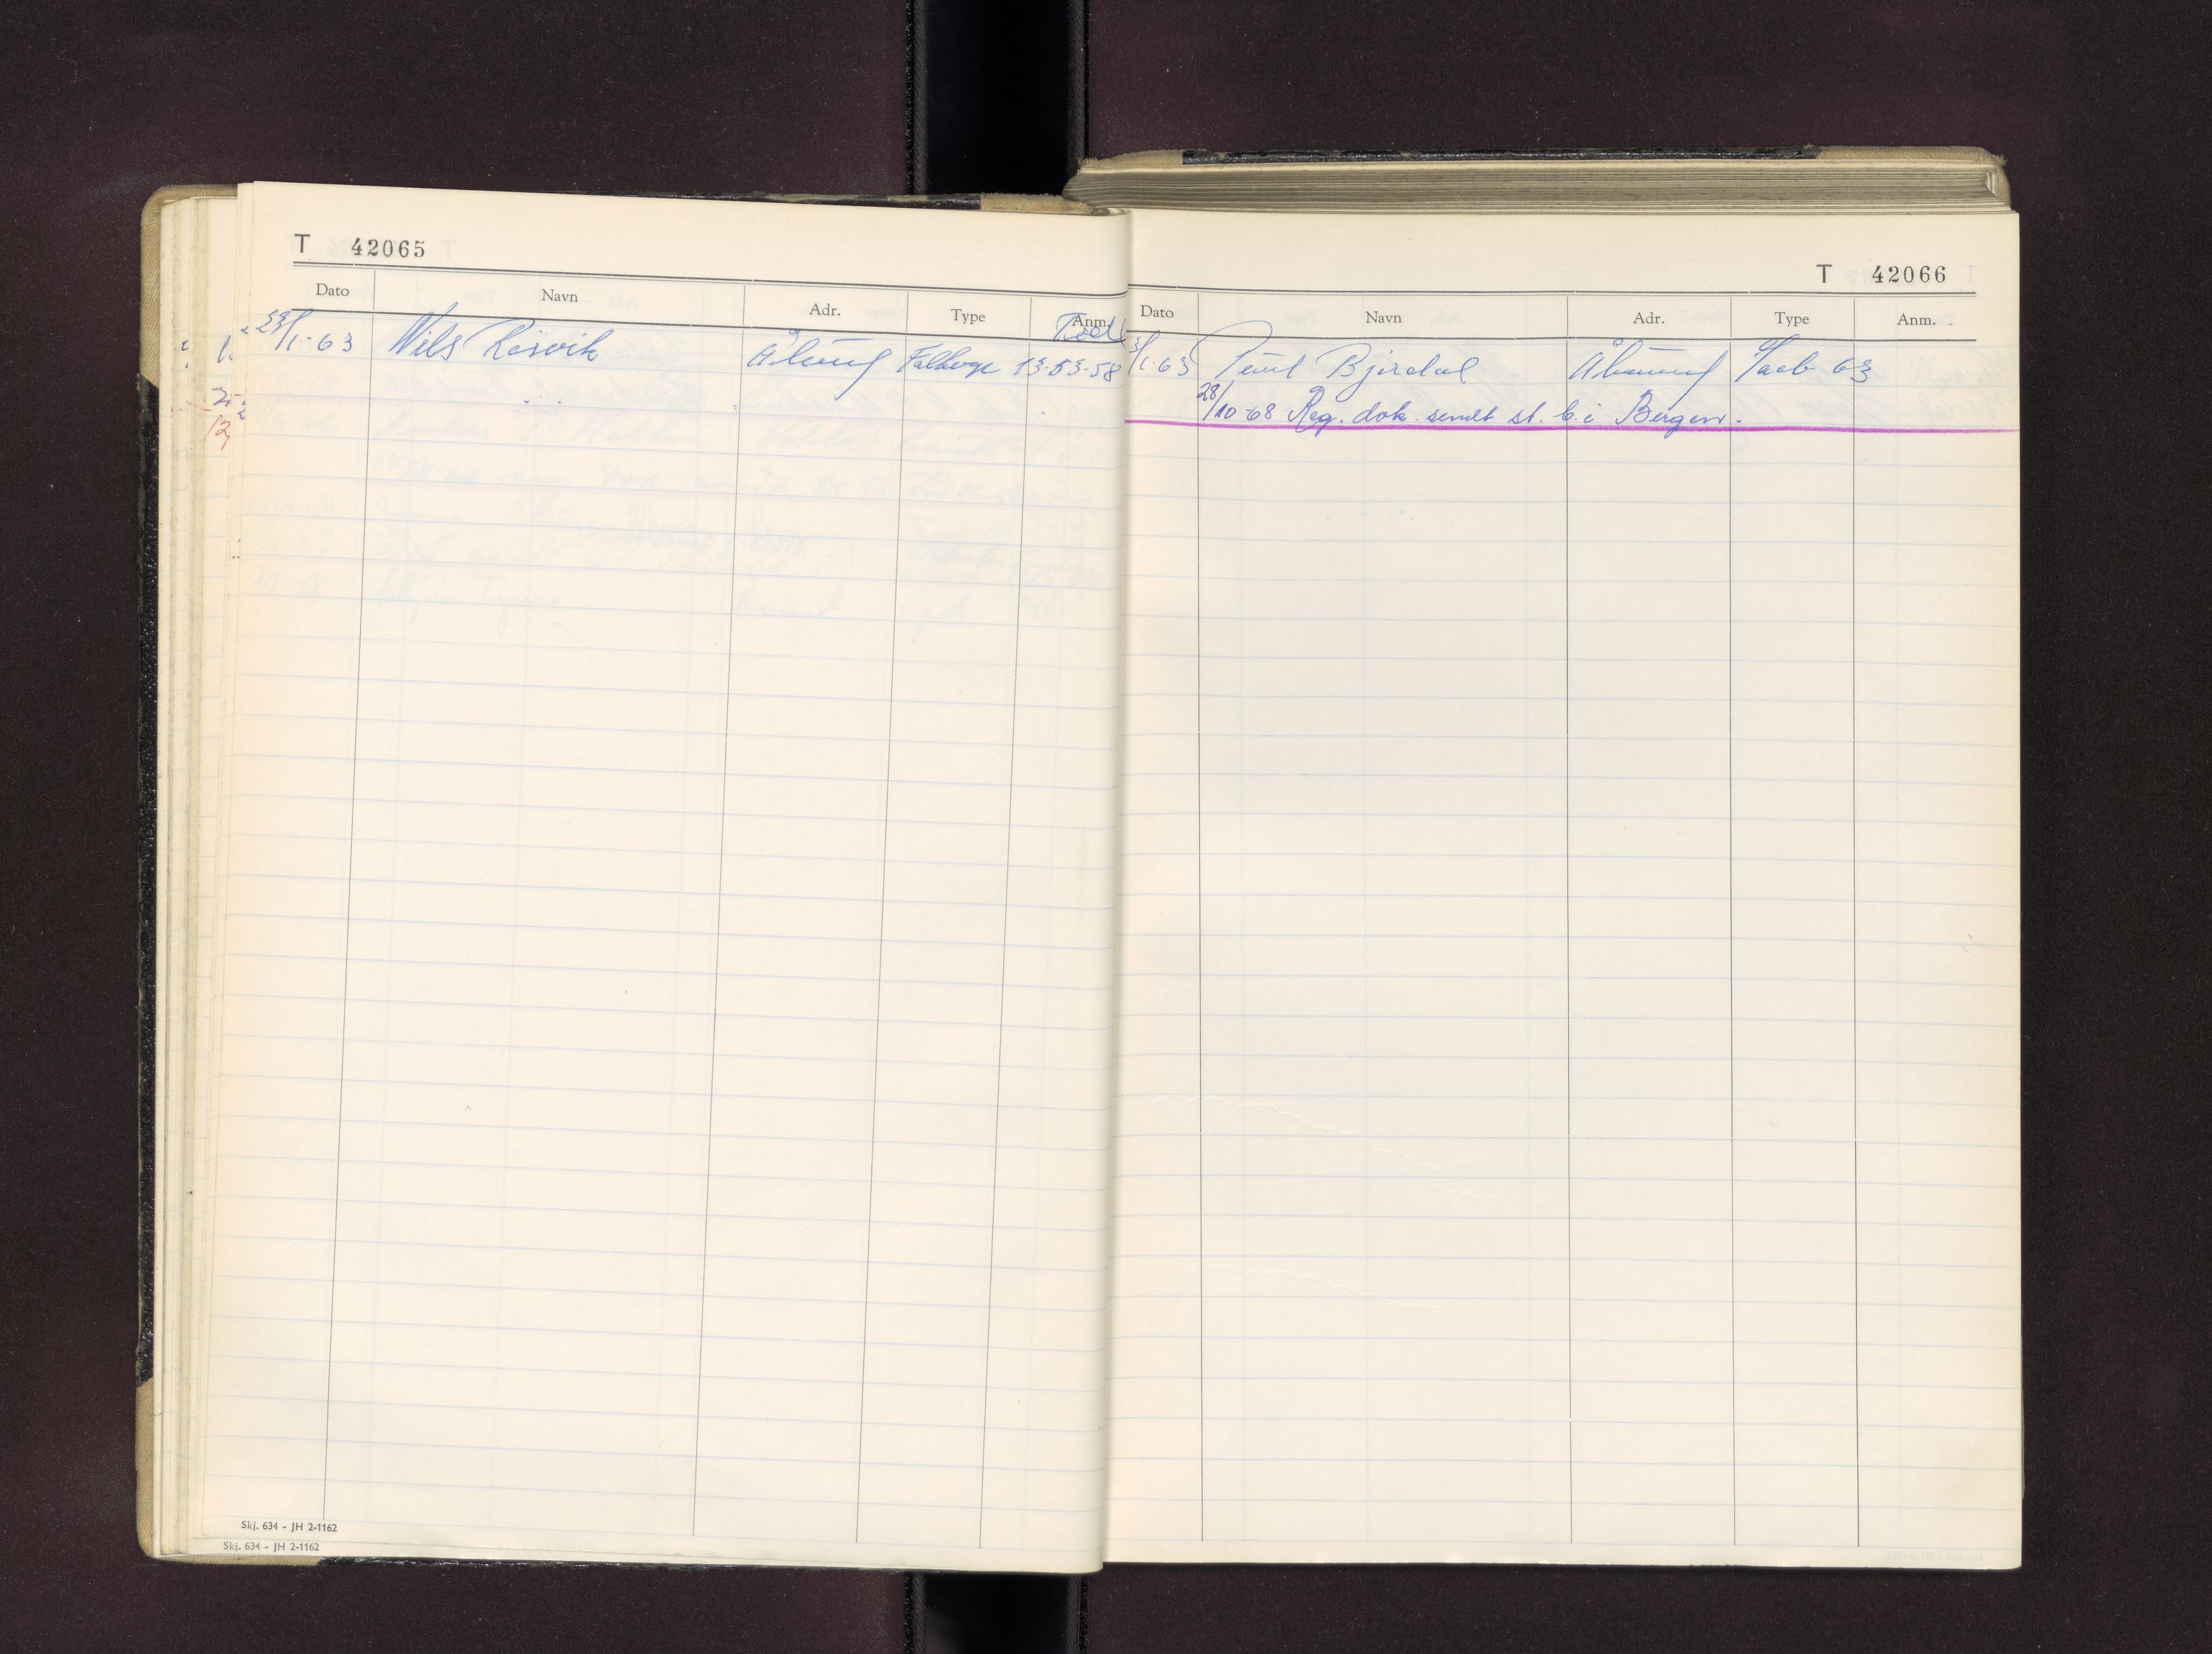 T 42065
Dato Navn Adr. Type Anm.
23/1-63 Nils Risvik Ålesund 13-53-58
Skj. 634 - JH 2-1162
Skj. 634 - JH 2-1162
T 42066
Dato Navn Adr. Type Anm.
3/1-63 Paul Bjørdal Ålesund Saab 63
28/10-68 Reg. dok. sendt st. b. i Bergen.